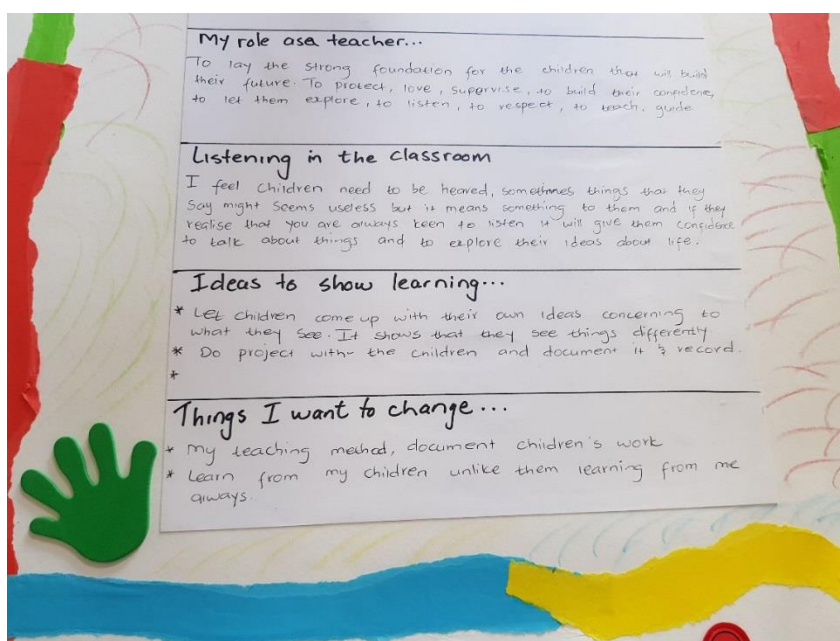 My role as a teacher...
To lay the strong foundation for the children that will build
their future. To protect, love, supervise, to build their confidene,
to let them explore, to listen, to respect, to teach, guide
Listening in the classroom
I feel children need to be heared, sometimes things that they
say might seems useless but it means something to them and if they
realise that you are always keen to listen it will give them confidence
to talk about things and to explore their ideas about life.
Ideas to show learning...
* Let children come up with their own ideas concerning to
what they see. It shows that they see things differently
* Do project with the children and document it & record.
*
Things I want to change...
* My teaching method, document children's work
* Learn from my children unlike them learning from me
always.